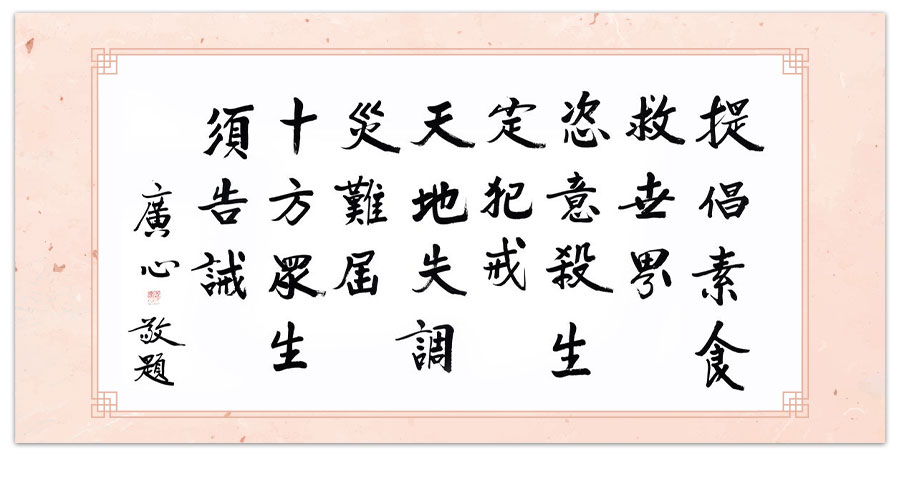 提倡素食
救世界
恣意殺生
定犯戒
天地失調
災難屆
十方眾生
須告誡
廣心敬題